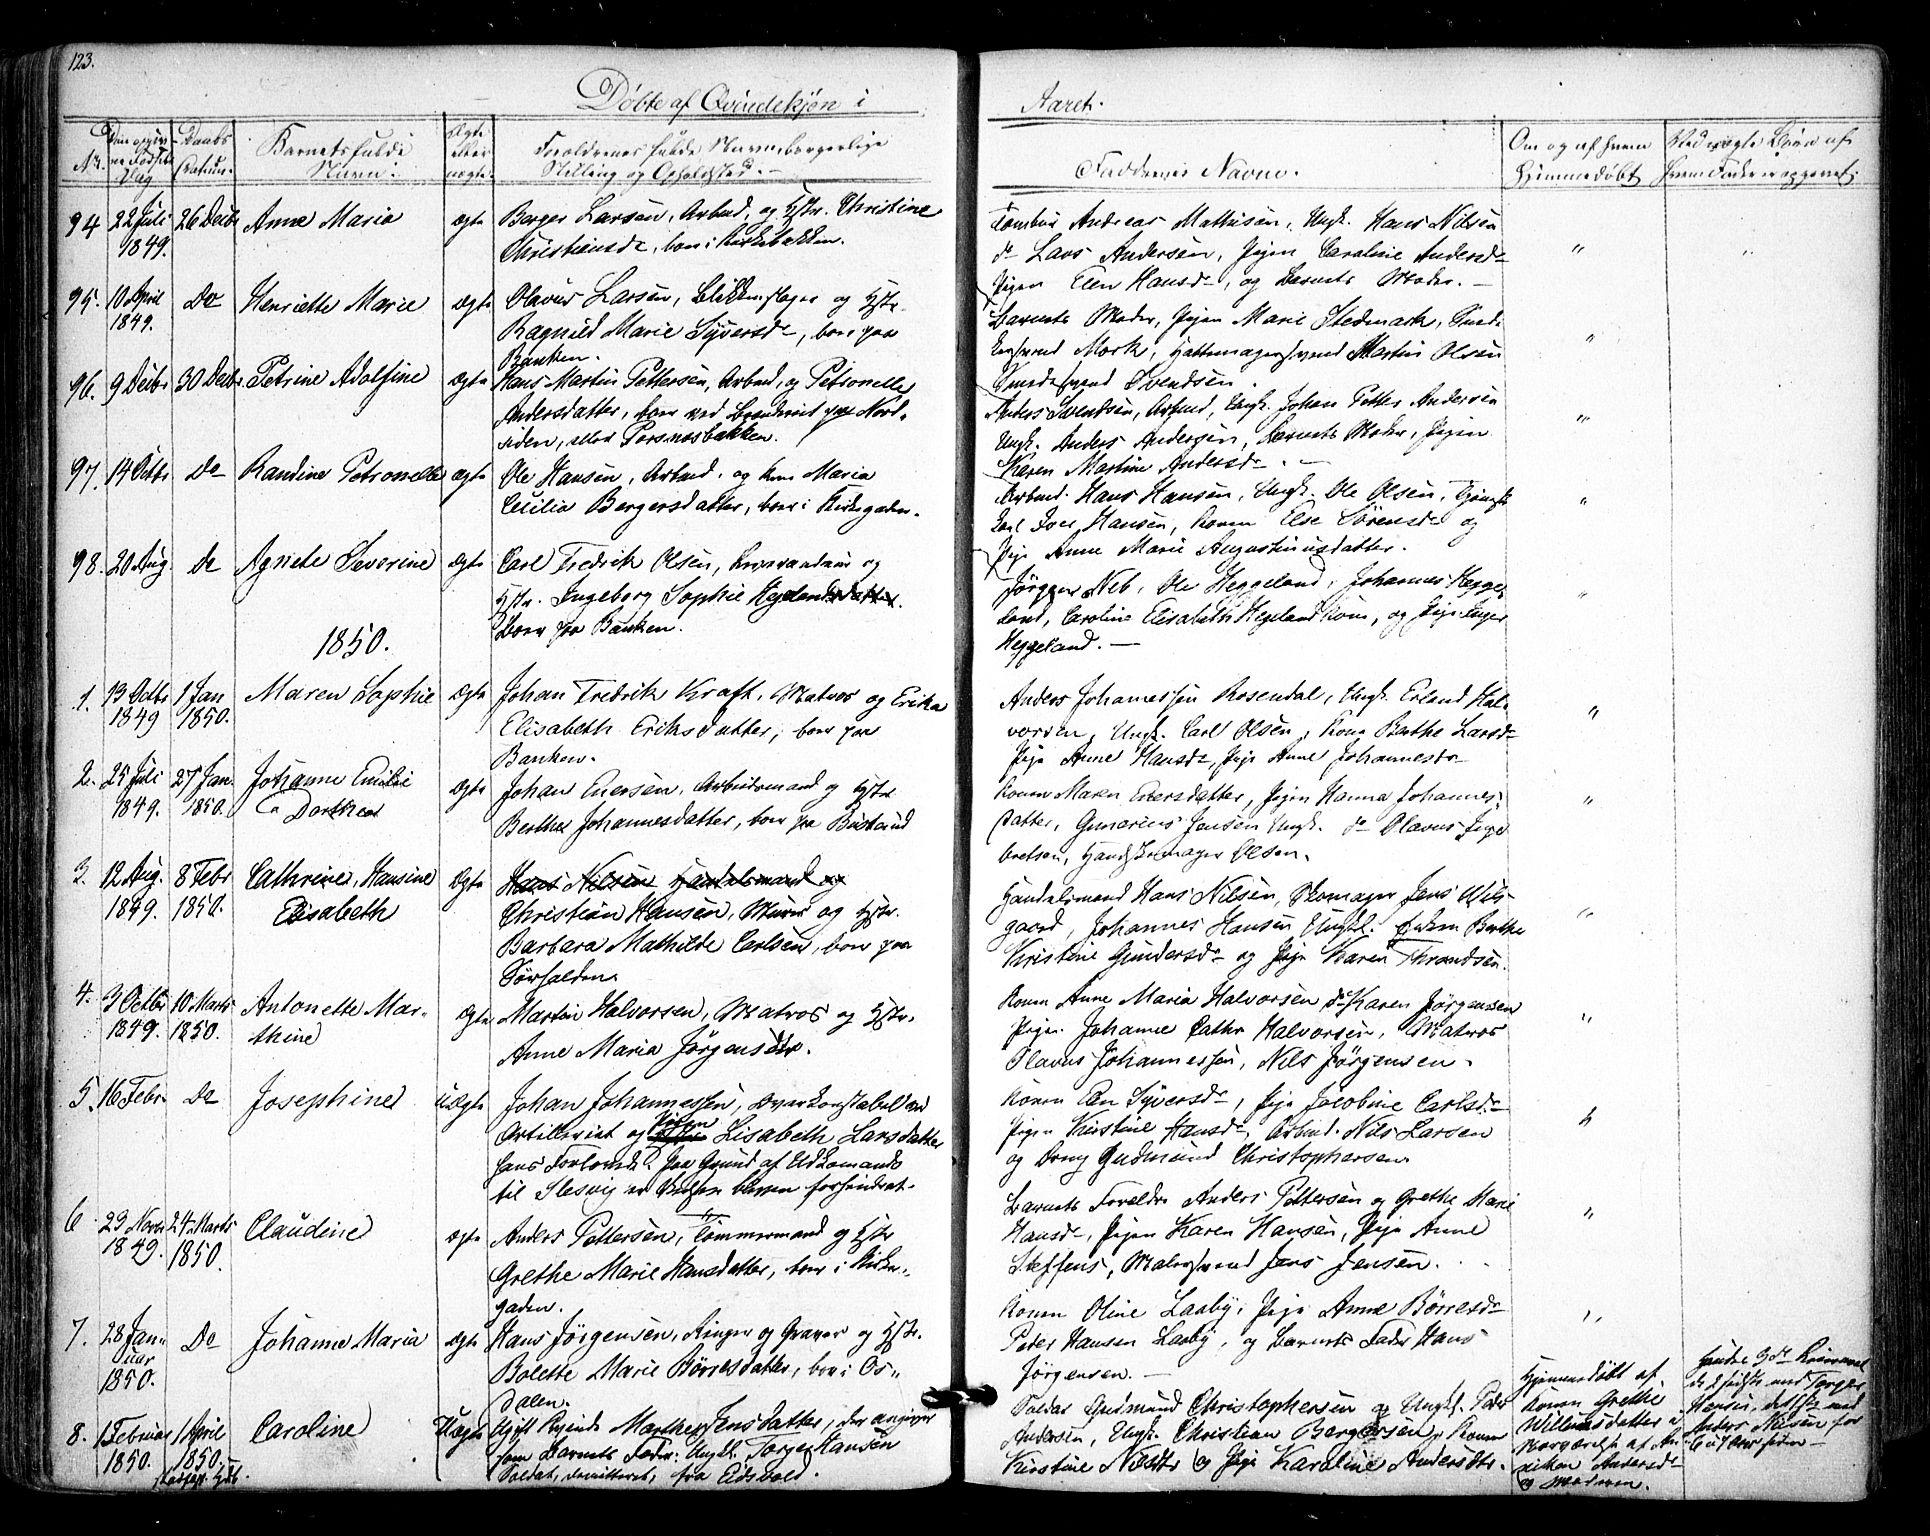 123.
Døbte af Qvindekjøn i Aaret.
Nr. Dag Daabs Datum. Barnets fulde Navn. Ægte eller uægte. Forældrenes fulde Navn, borgerlige Stilling og Opholdssted. Faddernes Navne. Om og af hvem Hjemmedøbt Ved uægte Børn af hvem Fader er opgivet.
94 22 Juli 26 Decbr Anne Maria ægte Berger Larsen, Arbmd, og Hstr. Christine
1849. Christiansdr, boer i Kirkebakken.
Andreas Mathisen, Ungk. Hans Nilsen
do Lars Andersen, Pigen Caroline Andersdr
Pigen Elen Hansdr, og Barnets Moder.
95. 10 April Do Henriette Marie ægte Olavus Larsen, Blikkenslager og Hstr.
1849. Ragnild Marie Syversdr, boer paa
Banken.
Barnets Moder, Pigen Marie Stedmark, Smede
svend Mork, Hattemagersvend Martin Olsen
Smedesvend Svendsen.
96. 9 Decbr 30 Decbr Petrine Adolfine ægte Hans Martin Pettersen, Arbmd, og Petronelle
Andersdatter, boer ved Brænderiet paa Nord-
siden, eller Porsnesbakken.
Anders Svendsen, Arbmd, Ungk. Johan Petter Andersen
Ungk. Anders Andersen, Barnets Moder, Pigen
Karen Martine Andersdr.
97. 14 Octbr Do Randine Petronelle ægte Ole Hansen, Arbmd. og Kone Maria
Cecilia Bergersdatter, boer i Kirkegaden.
Arbmd. Hans Hansen, Ungk. Ole Olsen, Tjeneste
karl Iver Hansen, Konen Else Sørensdr og
Pige Anne Marie Augustinusdatter.
98. 20 Aug. Do Agnete Severine ægte Carl Fredrik Olsen, og
Hstr. Ingeborg Sophie Hegelandsdatter.
boer paa Banken.
Jørgen Neb, Ole Heggeland, Johannes Hegge-
land, Caroline Elisabeth Hegeland Kone, og Pige Inger
Heggeland.
1850.
1. 13 Octbr 1 Jan Maren Sophie ægte Johan Fredrik Kraft, Matros og Erika
1849 1850. Elisabeth Eriksdatter, boer paa
Banken.
Anders Johannessen Rosendal, Ungk. Erland Hal-
vorsen, Ungk. Carl Olsen, Kone Berthe Larsdr
Pige Anne Hansdr, Pige Anne Johannesdr
2. 25 Juli 27 Jan. Johanne Emilie ægte Johan Evensen, Arbeidsmand og Hstr
1849. 1850. Dorthea Berthe Johannesdatter, boer paa Bustand
Konen Maren Eversdatter, Pigen Hanna Johannes-
datter, Gunarius Jensen Ungk. do Olavus Inge
bretsen, Handskemager Olsen.
3. 12 Aug. 8 Febr Cathrine, Hansine ægte Hans Nilsen Handelsmand og
1849. 1850. Elisabeth Christian Hansen, Murer og Hstr.
Barbara Mathilde Carlsen, boer paa
Sørhalden.
Handelsmand Hans Nilsen, Skomager Jens Wils-
gaard, Johannes Hansen Ungk. Enken Berthe
Kristine Gundersdr og Pige Karen Throndsen.
4. 3 Octbr 10 Marts Antonette Mar- ægte Martin Halvorsen, Matros og Hstr.
1849. 1850. thine Anne Maria Jørgensdr.
Konen Anne Maria Halvorsen do Karen Jørgensen
Pigen Johanne Cathr Halvorsen, Matros
Olavus Johannessen, Nils Jørgensen.
5. 16 Febr. Do Josephine uægte Johan Johannessen, Overkonstabel ved
Artilleriet og Pigen Lisabeth Larsdatter
hans Forlovede. Paa Grund af Udkomando
til Slesvig er Vielsen bleven forhindret.
Konen Elen Syversdr, Pige Jacobine Carlsdr
Pigen Kirstine Hansdr, Arbmd. Nils Larsen
og Dreng Gudmund Christophersen.
6. 23 Novbr 24 Marts Claudine ægte Anders Pettersen, Tømmermand og Hstr
1849. 1850. Grethe Marie Hansdatter, boer i Kirke-
gaden.
Barnets Forældre Anders Pettersen og Grethe Marie
Hansdr, Pigen Karen Hansen, Pige Anne
Steffens, Malersvend Jens Jensen.
7. 28 Jan- Do Johanne Maria ægte Hans Jørgensen, Ringer og Graver og Hstr.
uar Bolette Marie Børresdatter, boer i Os-
1850. dalen.
Konen Oline Laaby, Pige Anne Børresdr
Peder Hansen Laaby, og Barnets Fader Hans
Jørgensen.
8. 1 Februar 1 April Caroline Uægte Gift Marthe Jensdatter, der angiver
1850. 1850. som Barnets Fader: Ungk. Torger Hansen
Soldat, dimitteret, fra Eidsvold.
Soldat Gudmund Christophersen og Ungk. Peder
Andersen, Ungk. Christian Bergersen, Konen
Kirstine Nilsdtr og Pige Karoline Andersdtr.
Hjemmedøbt af
Konen Grethe
Willumsdatter i
Overværelse af An-
niken Andersdr
og Moderen.
Hansen, det fte med
Anders Nilsen for
6 à 7 Aar siden